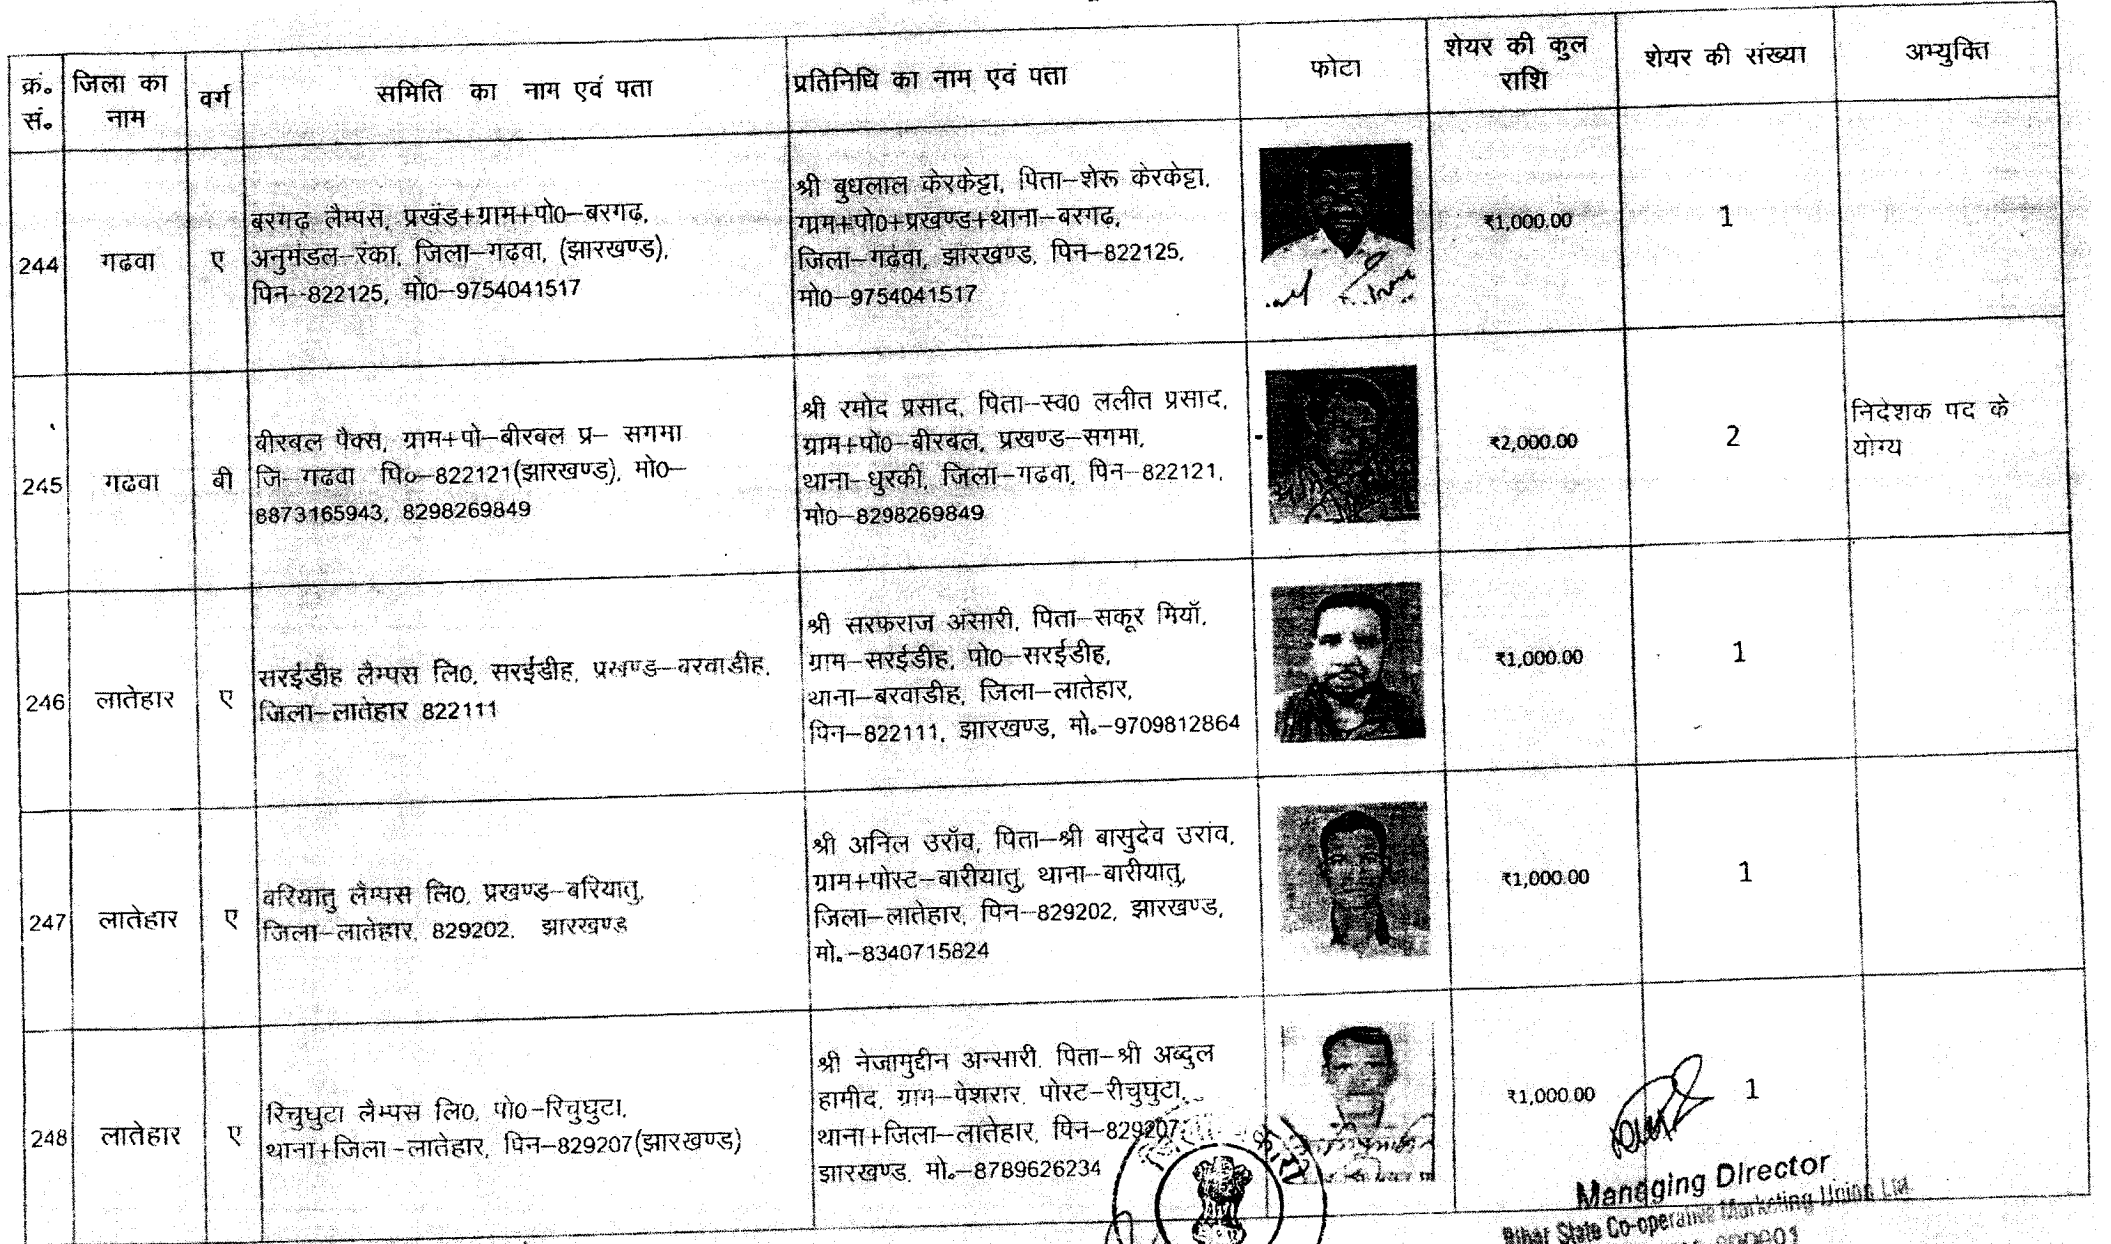 क्रं॰ सं॰
जिला का नाम
वर्ग
समिति का नाम एवं पता
प्रतिनिधि का नाम एवं पता
फोटा
शेयर की कुल राशि
शेयर की संख्या
अभ्युक्ति
244
गढवा
ए
बरगढ लैम्पस, प्रखंड+ग्राम+पो0–बरगढ,
अनुमंडल–रंका, जिला–गढवा, (झारखण्ड),
पिन–822125, मो0–9754041517
श्री बुधलाल केरकेट्टा, पिता–शेरू केरकेट्टा,
ग्राम+पो0+प्रखण्ड+थाना–बरगढ़,
जिला–गढ़वा, झारखण्ड, पिन–822125,
मो0–9754041517
₹1,000.00
1
245
गढवा
बी
बीरबल पैक्स, ग्राम+पो–बीरबल प्र– सगमा
जि– गढवा पि०–822121(झारखण्ड), मो0–
8873165943, 8298269849
श्री रमोद प्रसाद, पिता–स्व0 ललीत प्रसाद,
ग्राम+पो0–बीरबल, प्रखण्ड–सगमा,
थाना–धुरकी, जिला–गढवा, पिन–822121,
मो0–8298269849
₹2,000.00
2
निदेशक पद के
योग्य
246
लातेहार
ए
सरईडीह लैम्पस लि0, सरईडीह, प्रखण्ड–बरवाडीह,
जिला–लातेहार 822111
श्री सरफराज अंसारी, पिता–सकूर मियाँ,
ग्राम–सरईडीह, पो0–सरईडीह,
थाना–बरवाडीह, जिला–लातेहार,
पिन–822111, झारखण्ड, मो॰–9709812864
₹1,000.00
1
247
लातेहार
ए
बरियातु लैम्पस लि0, प्रखण्ड–बरियातु,
जिला–लातेहार, 829202, झारखण्ड
श्री अनिल उराँव, पिता–श्री बासुदेव उरांव,
ग्राम+पोस्ट–बारीयातु, थाना–बारीयातु,
जिला–लातेहार, पिन–829202, झारखण्ड,
मो॰–8340715824
₹1,000.00
1
248
लातेहार
ए
रिचुघुटा लैम्पस लि0, पो0–रिचुघुटा,
थाना+जिला–लातेहार, पिन–829207(झारखण्ड)
श्री नेजामुद्दीन अन्सारी, पिता–श्री अब्दुल
हामीद, ग्राम–पेशरार, पोस्ट–रीचुघुटा,
थाना+जिला–लातेहार, पिन–829207,
झारखण्ड, मो॰–8789626234
₹1,000.00
1
Managing Director
Bihar State Co-operative Marketing Union Ltd.